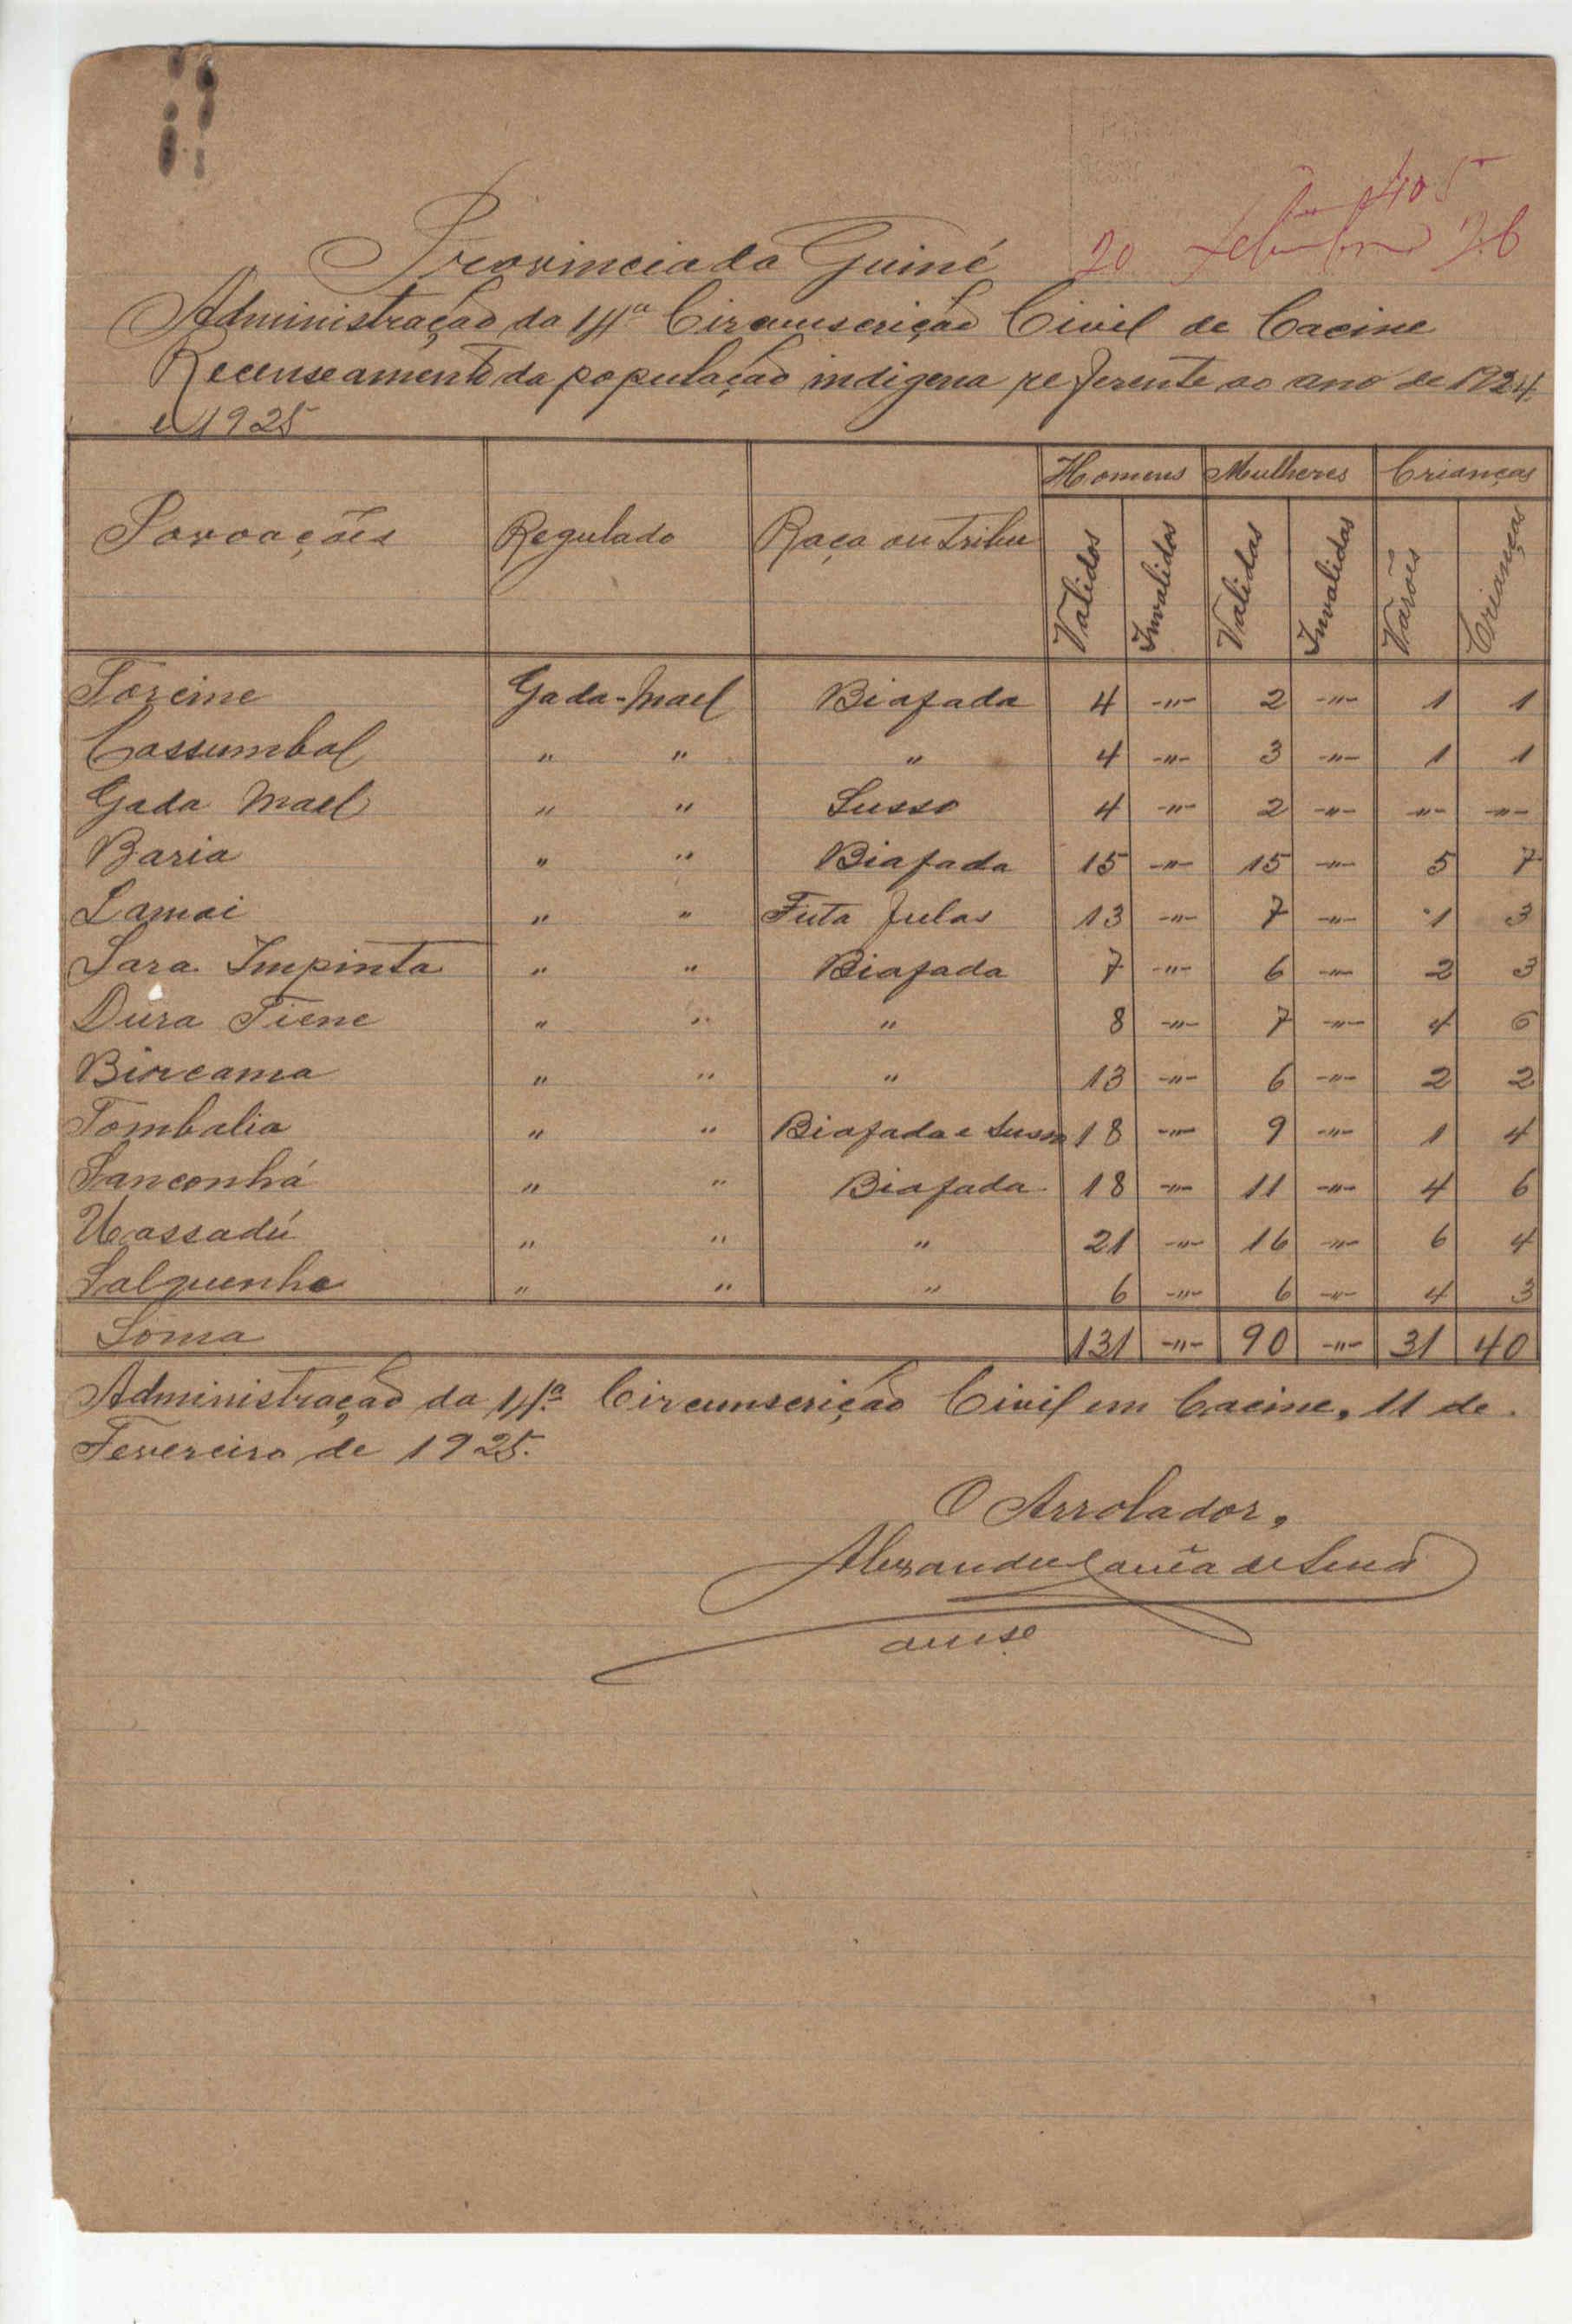 405
20 Setembro 26
Provincia da Guiné
Administração da 14ª Circunscrição Civil de Cacine
Recenseamento da população indigena referente ao ano de 1924
e 1925
Povoações Regulado Raça ou tribu Homens Mulheres Crianças
Validos Invalidos Validas Invalidas Varões Crianças
Toreine Gada-Mael Biafada 4 -"- 2 -"- 1 1
Cassumbal " " " 4 -"- 3 -"- 1 1
Gada Mael " " Susso 4 -"- 2 -"- -"- -"-
Baria " " Biafada 15 -"- 15 -"- 5 7
Lamoi " " Futa fulas 13 -"- 7 -"- 1 3
Sara Impinta " " Biafada 7 -"- 6 -"- 2 3
Dura Tiene " " " 8 -"- 7 -"- 4 6
Bircama " " " 13 -"- 6 -"- 2 2
Tombalia " " Biafada e Susso 18 -"- 9 -"- 1 4
Sanconhá " " Biafada 18 -"- 11 -"- 4 6
Uassadú " " " 21 -"- 16 -"- 6 4
Salquenha " " " 6 -"- 6 -"- 4 3
Soma 131 -"- 90 -"- 31 40
Administração da 14ª Circumscrição Civil em Cacine, 11 de
Fevereiro de 1925.
O Arrolador,
Alexandre de Sená